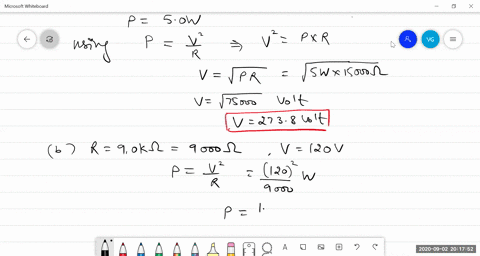 Microsoft Whiteboard
P = 5.0W
using P = V²/R ⇒ V² = P×R
V = √PR = √5W×15000Ω
V = √75000 Volt
V = 273.8 Volt
(b) R = 9.0kΩ = 9000Ω , V = 120V
P = V²/R = (120)²/9000 W
P = 1.
VG
2020-09-02 20:17:52